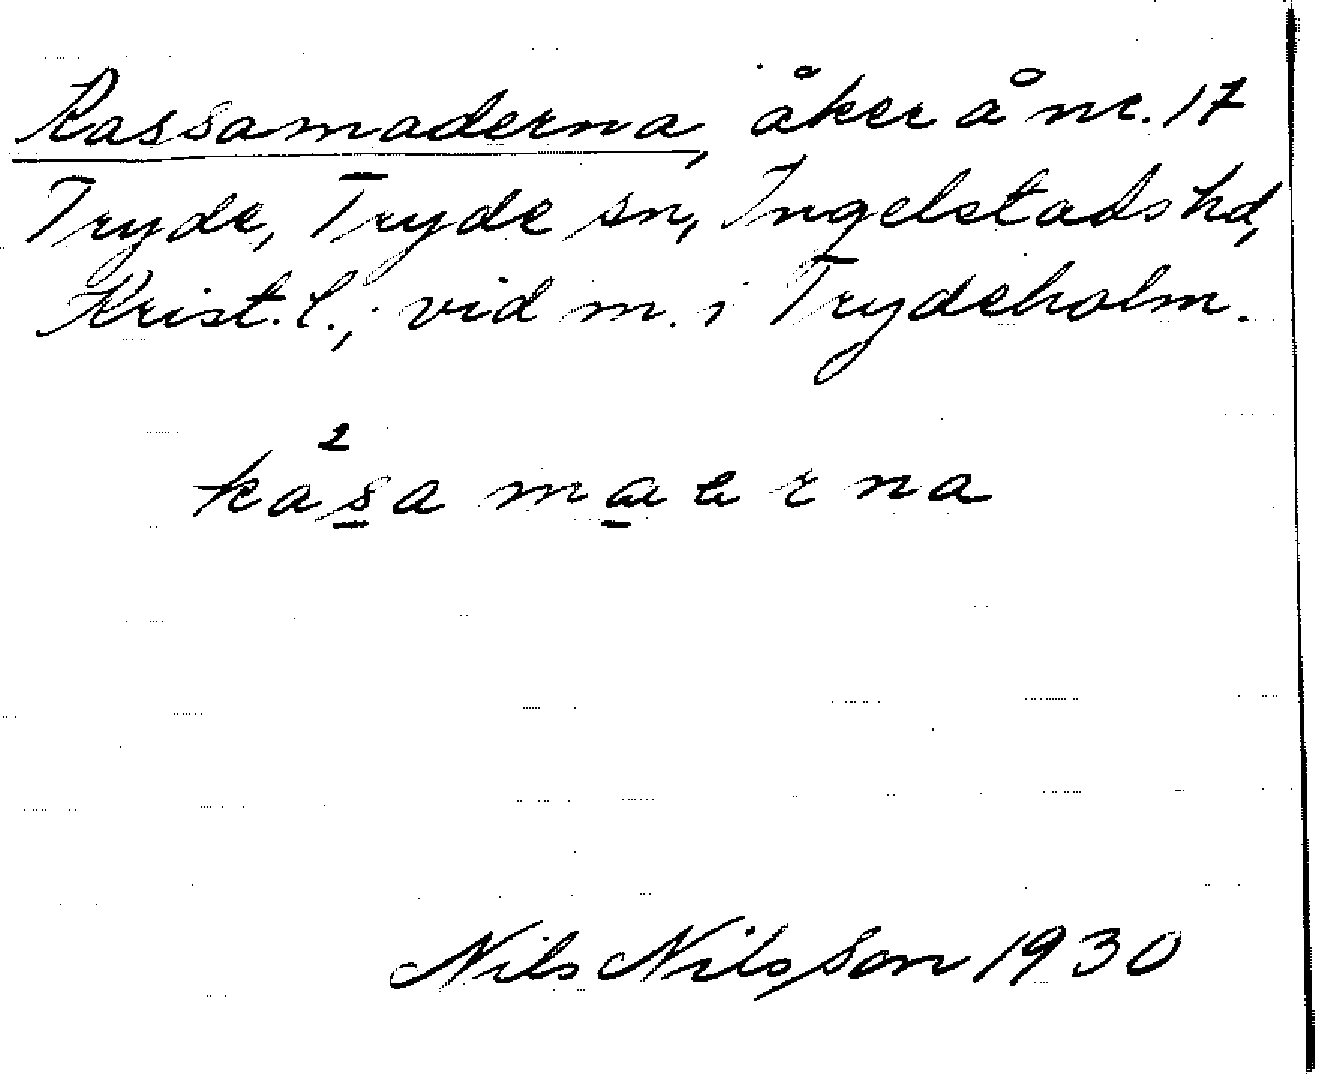 Kassamaderna, åker å nr. 17
Tryde, Tryde sn, Ingelstads hd,
Krist. l.; vid m. i Trydeholm.
2
kasa maerna
Nils Nilsson 1930